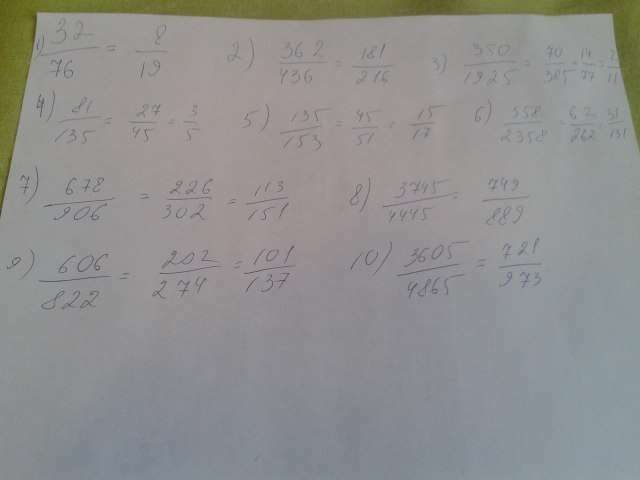 1) 32/76 = 8/19 2) 362/436 = 181/216 3) 350/1925 = 70/385 = 14/77 = 2/11
4) 81/135 = 27/45 = 3/5 5) 135/153 = 45/51 = 15/17 6) 558/2358 62/262 31/131
7) 678/906 = 226/302 = 113/151 8) 3745/4445 - 749/889
9) 606/822 = 202/274 = 101/137 10) 3605/4865 = 721/973